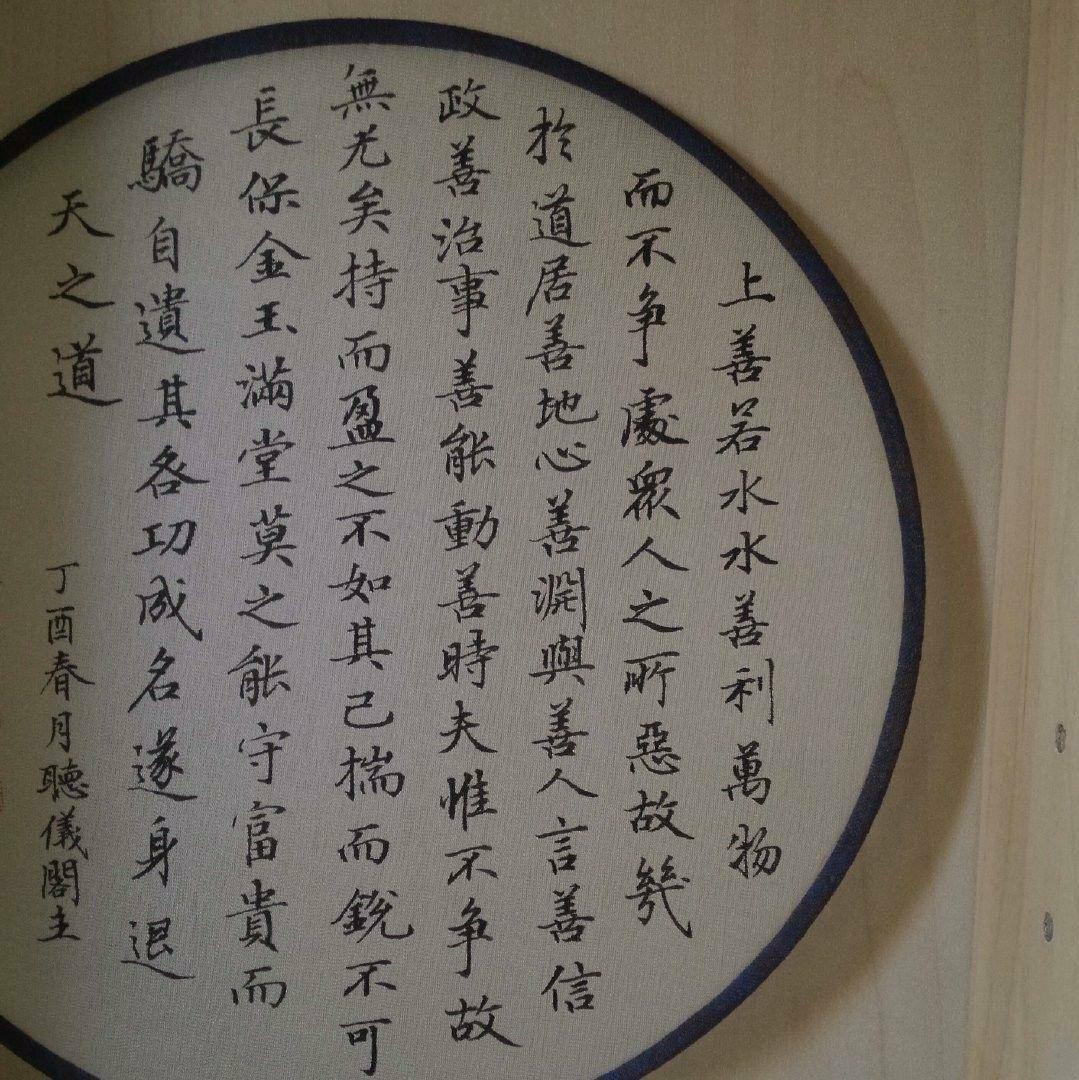 上善若水水善利萬物
而不争處衆人之所惡故幾
於道居善地心善淵與善人言善信
政善治事善能動善時夫惟不争故
無尤矣持而盈之不如其己揣而銳不可
長保金玉滿堂莫之能守富貴而
驕自遺其咎功成名遂身退
天之道
丁酉春月聽儀閣主